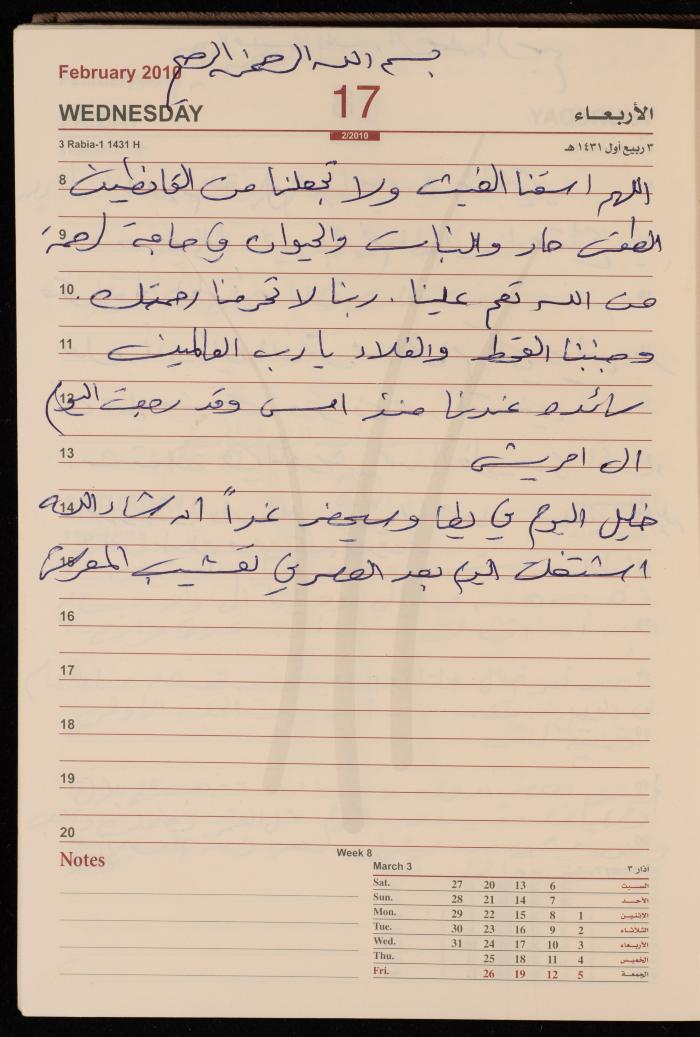 بسم الله الرحمن الرحيم
February 2010
WEDNESDAY 17 الأربعاء
2/2010
3 Rabia-1 1431 H ٣ ربيع أول ١٤٣١ هـ
8 اللهم اسقنا الغيث ولا تجعلنا من القانطين
9 الطقس حار والنبات والحيوان في حاجة رحمة
10 من الله تعم علينا . ربنا لا تحرمنا رحمتك .
11 وجنبنا القحط والغلاء يا رب العالمين
12 سائده عندنا منذ امس وقد رجعت اليوم
13 الى امريش
14 خليل اليوم في يطا وسيحضر غداً ان شاء الله
15 اشتغلت اليوم بعد العصر في تعشيب
16
17
18
19
20
Notes
Week 8
March 3 آذار ٣
Sat. 27 20 13 6 السبت
Sun. 28 21 14 7 الأحد
Mon. 29 22 15 8 1 الإثنين
Tue. 30 23 16 9 2 الثلاثاء
Wed. 31 24 17 10 3 الأربعاء
Thu. 25 18 11 4 الخميس
Fri. 26 19 12 5 الجمعة